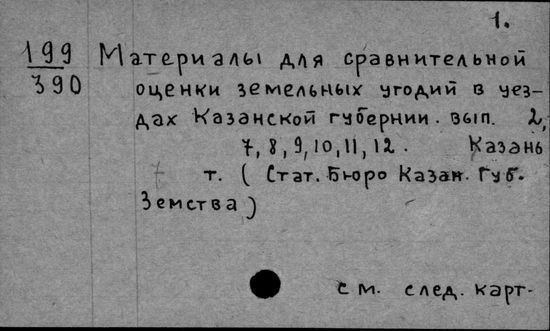 1.
199 Материалы для сравнительной
390 оценки земельных угодий в уез-
дах Казанской губернии. вып. 2,
7, 8, 9, 10, 11, 12. Казань
т. (Стат. Бюро Казан. Губ.
Земства)
см. след. карт-